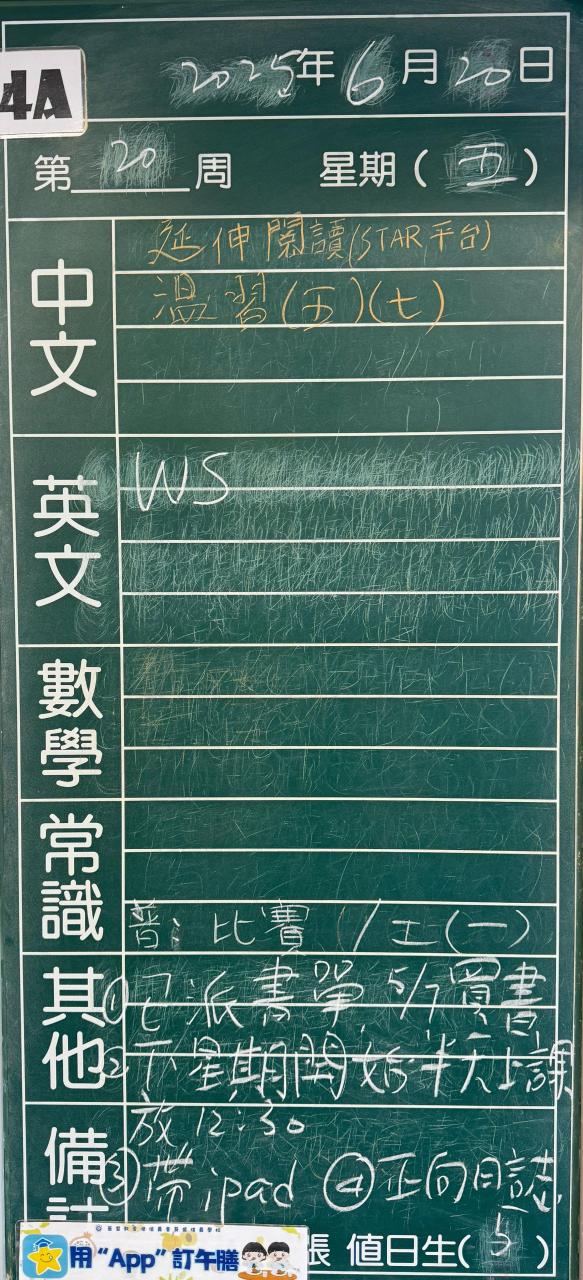 4A
2025年6月20日
第20周 星期(五)
中文
延伸閱讀(STAR平台)
溫習(五)(七)
英文
WS
數學
常識
普: 比賽 /
其他
①已派書單 5/7買書
②下星期開始半天上課
放12:30
備註
③帶ipad ④正向日誌
張 值日生(5)
用“App”訂午膳